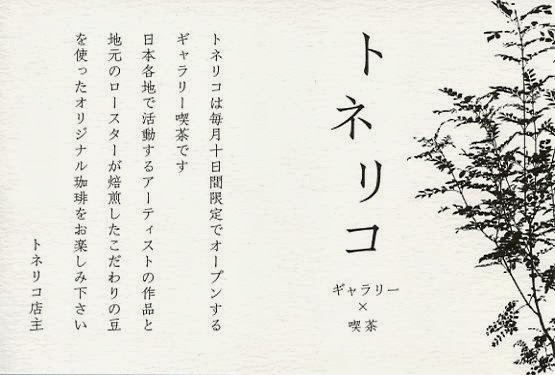 トネリコ
ギャラリー
×
喫茶
トネリコは毎月十日間限定でオープンする
ギャラリー喫茶です
日本各地で活動するアーティストの作品と
地元のロースターが焙煎したこだわりの豆
を使ったオリジナル珈琲をお楽しみ下さい
トネリコ店主